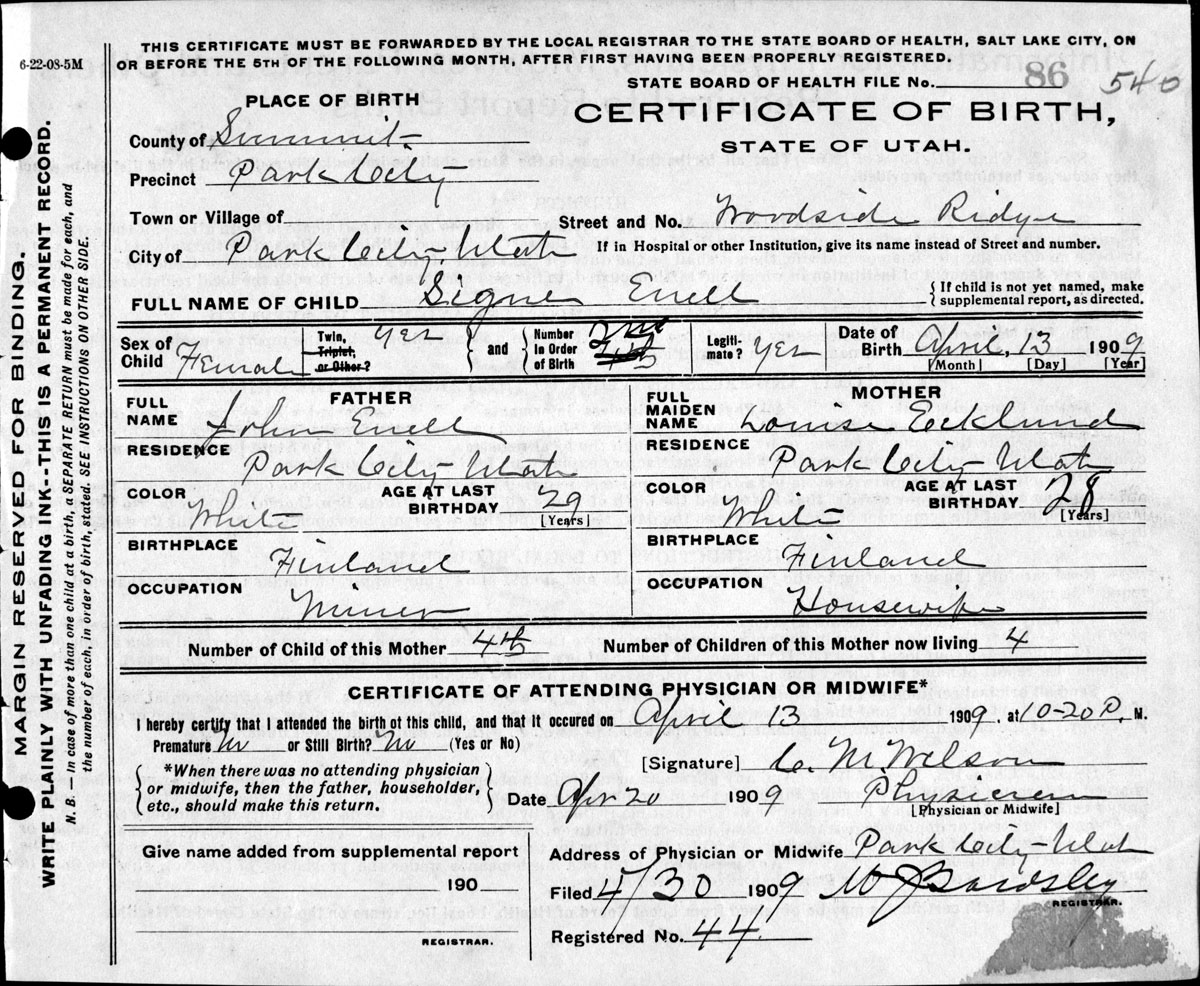 6-22-08-5M
THIS CERTIFICATE MUST BE FORWARDED BY THE LOCAL REGISTRAR TO THE STATE BOARD OF HEALTH, SALT LAKE CITY, ON
OR BEFORE THE 5TH OF THE FOLLOWING MONTH, AFTER FIRST HAVING BEEN PROPERLY REGISTERED.
STATE BOARD OF HEALTH FILE No. 86 540
PLACE OF BIRTH
CERTIFICATE OF BIRTH,
STATE OF UTAH.
County of Summit
Precinct Park City
Town or Village of
Street and No. Woodside Ridge
City of Park City-Utah
If in Hospital or other Institution, give its name instead of Street and number.
FULL NAME OF CHILD Signe Enell
{If child is not yet named, make
supplemental report, as directed.
Sex of Child Female
Twin, Triplet, or Other? Yes
and
Number in Order of Birth 2nd 4th
Legiti-mate? Yes
Date of Birth April, 13 1909
[Month] [Day] [Year]
FATHER
FULL NAME John Enell
RESIDENCE Park City-Utah
COLOR White
AGE AT LAST BIRTHDAY 29
[Years]
BIRTHPLACE Finland
OCCUPATION Miner
MOTHER
FULL MAIDEN NAME Louise Ecklund
RESIDENCE Park City-Utah
COLOR White
AGE AT LAST BIRTHDAY 28
[Years]
BIRTHPLACE Finland
OCCUPATION Housewife
Number of Child of this Mother 4th
Number of Children of this Mother now living 4
CERTIFICATE OF ATTENDING PHYSICIAN OR MIDWIFE*
I hereby certify that I attended the birth of this child, and that it occured on April 13 1909. at 10-20 P. M.
Premature No or Still Birth? No (Yes or No)
*When there was no attending physician
or midwife, then the father, householder,
etc., should make this return.
[Signature] C. M Wilson
Date Apr 20 1909 Physician
[Physician or Midwife]
Give name added from supplemental report
190
REGISTRAR.
Address of Physician or Midwife Park City-Utah
Filed 4/30 1909 W J Bardsley
REGISTRAR.
Registered No. 44.
MARGIN RESERVED FOR BINDING.
WRITE PLAINLY WITH UNFADING INK--THIS IS A PERMANENT RECORD.
N. B. — In case of more than one child at a birth, a SEPARATE RETURN must be made for each, and
the number of each, in order of birth, stated. SEE INSTRUCTIONS ON OTHER SIDE.